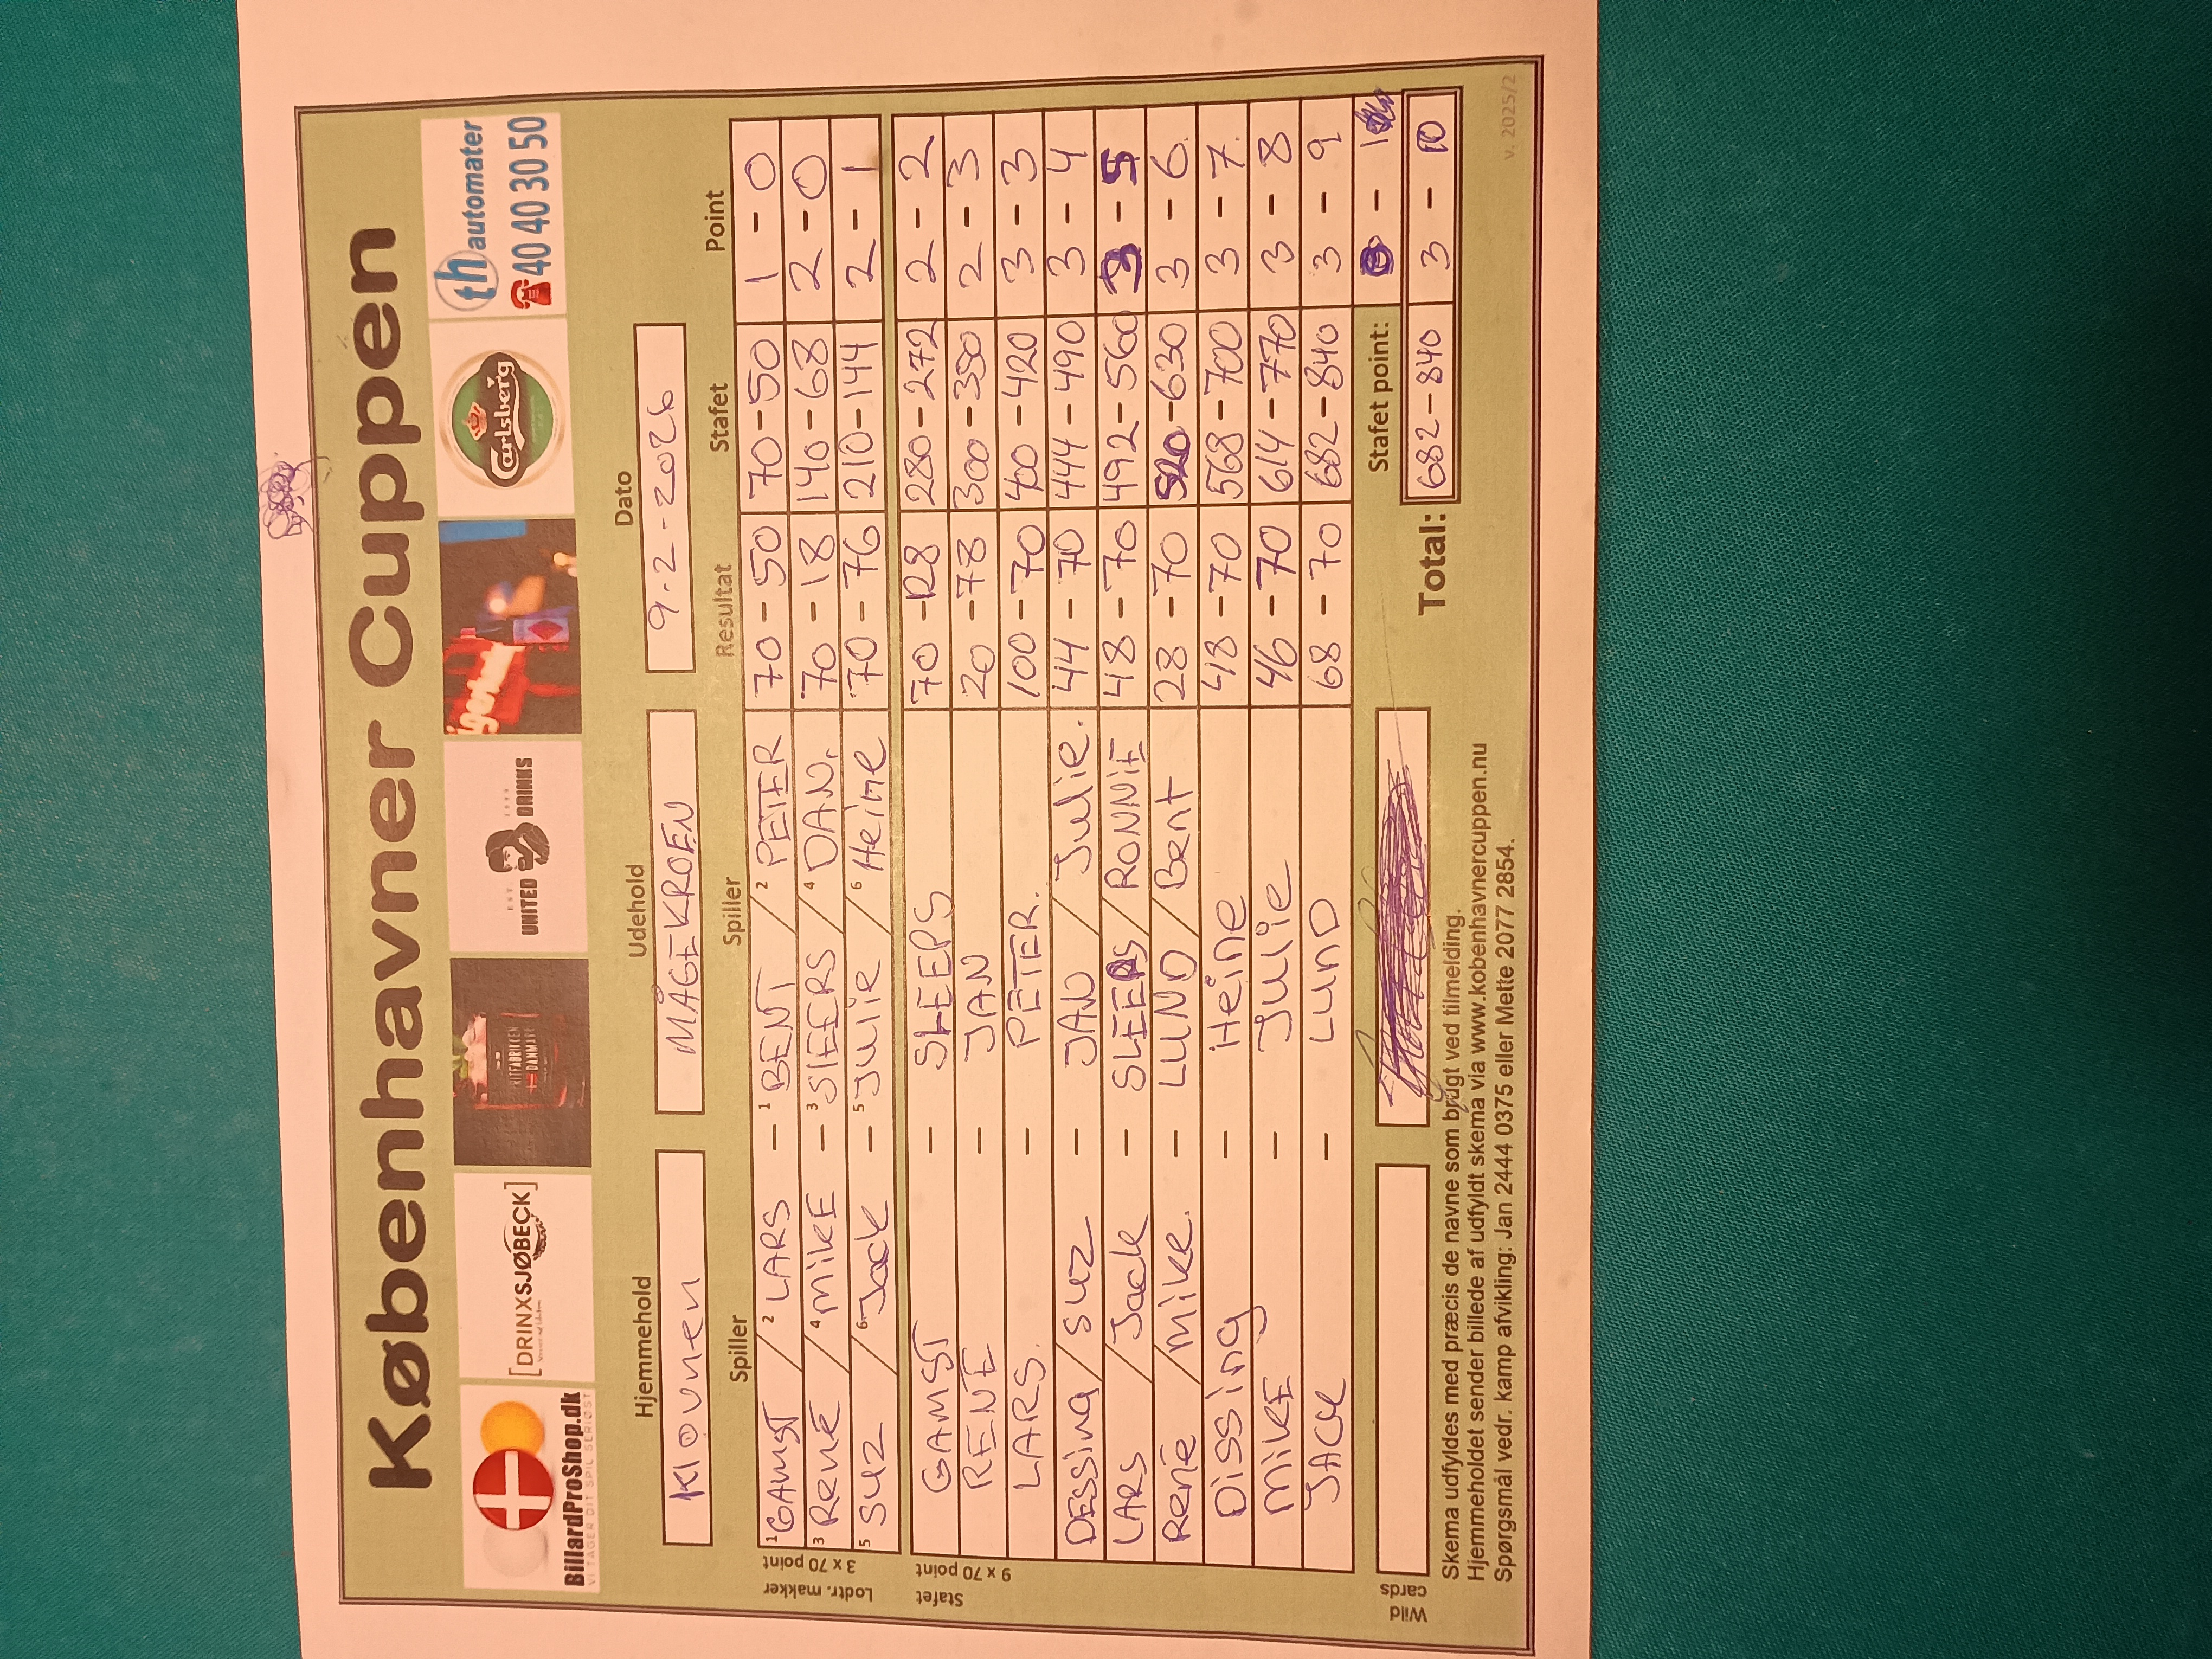 Københavner Cuppen
BillardProShop.dk
VI TAGER DIT SPIL SERIØST
[DRINXSJØBECK]
RITFABRIKEN
DANMARK
EST
UNITED DRINKS
Carlsberg
th automater
40 40 30 50
Hjemmehold Udehold Dato
Kløvneren MÅGEKROEN 9-2-2026
Spiller Spiller Resultat Stafet Point
Lodtr. makker
3 x 70 point
1 GAMST / 2 LARS - 1 BENT / 2 PETER 70 - 50 70 - 50 1 - 0
3 René / 4 MikE - 3 SlEEPS / 4 DAN. 70 - 18 140 - 68 2 - 0
5 SUZ / 6 Jack - 5 Julie / 6 Heine 70 - 76 210 - 144 2 - 1
Stafet
9 x 70 point
GAMST - SLEEPS 70 - 128 280 - 272 2 - 2
RENE - JAN 20 - 78 300 - 350 2 - 3
LARS. - PETER. 100 - 70 400 - 420 3 - 3
DESSing / SUZ - JAN / Julie. 44 - 70 444 - 490 3 - 4
LARS / Jack - SLEEPS / RONNIE 48 - 70 492 - 560 3 - 5
René / Mike. - LUND / Bent 28 - 70 520 - 630 3 - 6.
Dissing - Heine 48 - 70 568 - 700 3 - 7.
MikE - Julie 46 - 70 614 - 770 3 - 8
JACK - LUND 68 - 70 682 - 840 3 - 9
Wild cards Stafet point: - 1
Total: 682 - 840 3 - 10
Skema udfyldes med præcis de navne som brugt ved tilmelding.
Hjemmeholdet sender billede af udfyldt skema via www.københavnercuppen.nu
Spørgsmål vedr. kamp afvikling: Jan 2444 0375 eller Mette 2077 2854.
v. 2025/2